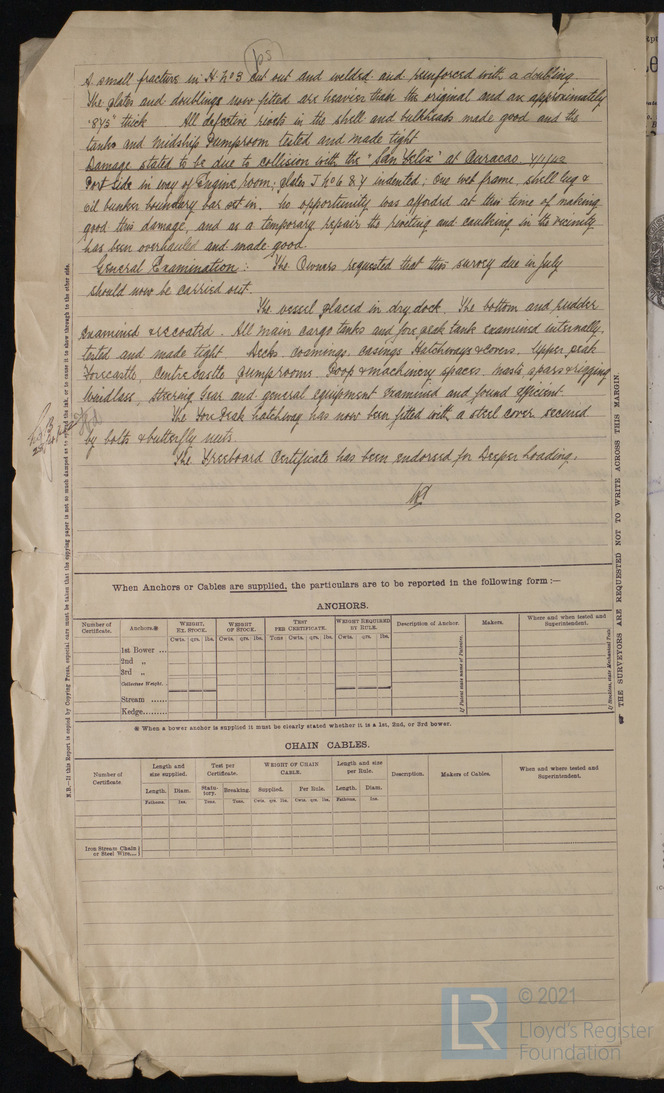 ps
A small fracture in H. No 3 cut out and welded and reinforced with a doubling.
The plates and doublings now fitted are heavier than the original and are approximately
.875" thick All defective rivets in the shell and bulkheads made good and the
tanks and midship Pumproom tested and made tight
Damage stated to be due to collision with the "San Felix" at Curacao
Port side in way of Engine room; plates J No 6 & 7 indented; one web frame, shell lug &
oil bunker boundary bar set in. No opportunity was afforded at this time of making
good this damage, and as a temporary repair the riveting and caulking in the vicinity
has been overhauled and made good.
General Examination: The Owners requested that this survey due in July
should now be carried out.
The vessel placed in dry dock. The bottom and rudder
examined & recoated. All main cargo tanks and fore peak tank examined internally,
tested and made tight. Decks, coamings, casings Hatchways & covers, Upper peak
Forecastle, Centrecastle pumprooms, Poop & machinery spaces, masts spars & rigging
windlass, steering gear and general equipment examined and found efficient.
The Fore Peak hatchway has now been fitted with a steel cover secured
by bolts & butterfly nuts.
The Freeboard Certificate has been endorsed for Deeper Loading.
When Anchors or Cables are supplied, the particulars are to be reported in the following form :—
ANCHORS.
Number of Certificate. Anchors.* WEIGHT, EX. STOCK. WEIGHT OF STOCK. TEST PER CERTIFICATE. WEIGHT REQUIRED BY RULE. Description of Anchor. Makers. Where and when tested and Superintendent.
Cwts. qrs. lbs. Cwts. qrs. lbs. Tons Cwts. qrs. lbs. Cwts. qrs. lbs.
1st Bower ...
2nd „
3rd „
Collective Weight.
Stream ......
Kedge.........
* When a bower anchor is supplied it must be clearly stated whether it is a 1st, 2nd, or 3rd bower.
CHAIN CABLES.
Number of Certificate Length and size supplied. Test per Certificate. WEIGHT OF CHAIN CABLE. Length and size per Rule. Description. Makers of Cables. When and where tested and Superintendent.
Length. Diam. Statutory. Breaking. Supplied. Per Rule. Length. Diam.
Fathoms. Ins. Tons. Tons. Cwts. qrs. lbs. Cwts. qrs. lbs. Fathoms. Ins.
Iron Stream Chain
or Steel Wire....
THE SURVEYORS ARE REQUESTED NOT TO WRITE ACROSS THIS MARGIN.
LR
© 2021
Lloyd's Register
Foundation